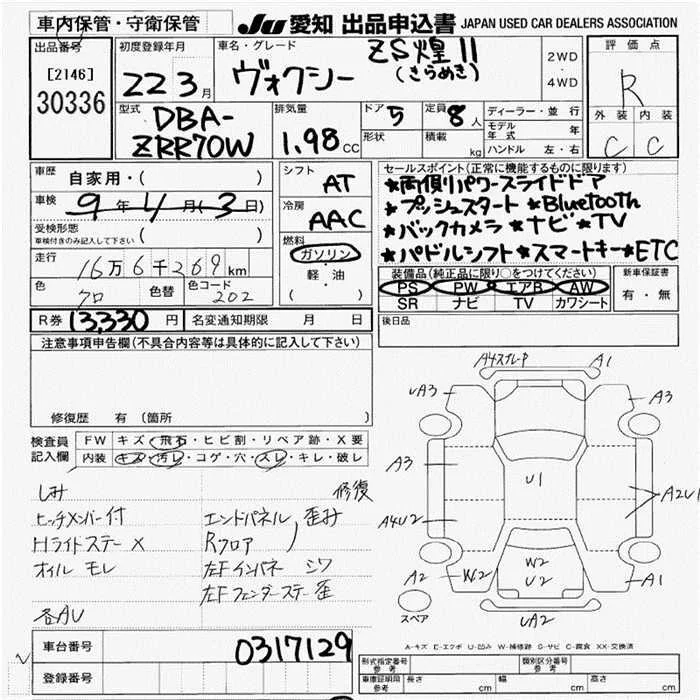 車内保管・守衛保管
JU 愛知 出品申込書 JAPAN USED CAR DEALERS ASSOCIATION
出品番号
[2146]
30336
初度登録年月
22 3月
車名・グレード
ヴォクシー
ZS煌II
(きらめき)
2WD
・
4WD
評価点
R
外装 内装
C C
型式
DBA-
ZRR70W
排気量
1.98 CC
ドア 5
形状
定員 8人
積載 kg
ディーラー・並行
モデル年式 年
ハンドル 左・右
車歴
自家用・( )
車検
9年4月(3日)
受検形態
車検付きのみ記入して下さい ( )
走行
16万6千269km
色
クロ
色替
色コード
202
シフト
AT
冷房
AAC
燃料
ガソリン
・
軽・油
( )
セールスポイント(正常に機能するものに限ります)
★両側パワースライドドア
★プッシュスタート ★Bluetooth
★バックカメラ ★ナビ ★TV
★パドルシフト ★スマートキー ★ETC
装備品(純正品に限り○をつけてください)
PS PW エアB AW
SR ナビ TV カワシート
新車保証書
有・無
R券 13,330円
名変通知期限 月 日
後日品
注意事項申告欄(不具合内容等は具体的に記入して下さい)
修復歴 有 (箇所 )
検査員
記入欄
FW キズ・飛石・ヒビ割・リペア跡・X要
内装 キズ・汚レ・コゲ・穴・スレ・キレ・破レ
しみ 修復
ヒッチメンバー付 エンドパネル 歪み
Hライドステー X Rフロア
オイル モレ 左Fインパネ シワ
左Fフェンダーステー 歪
各AU
A4スプレーP A1
UA3 A3
A3 U1
A2U1
A4U2
A2 W2 W2 U2 A1
UA2
スペア
A-キズ E-エクボ U-凹み W-補修跡 S-サビ C-腐食 XX-交換済
車台番号 0317129
登録番号
型式指定番号
参考
類別区分番号
参考
車庫証明用
参考
長さ cm 幅 cm 高さ cm